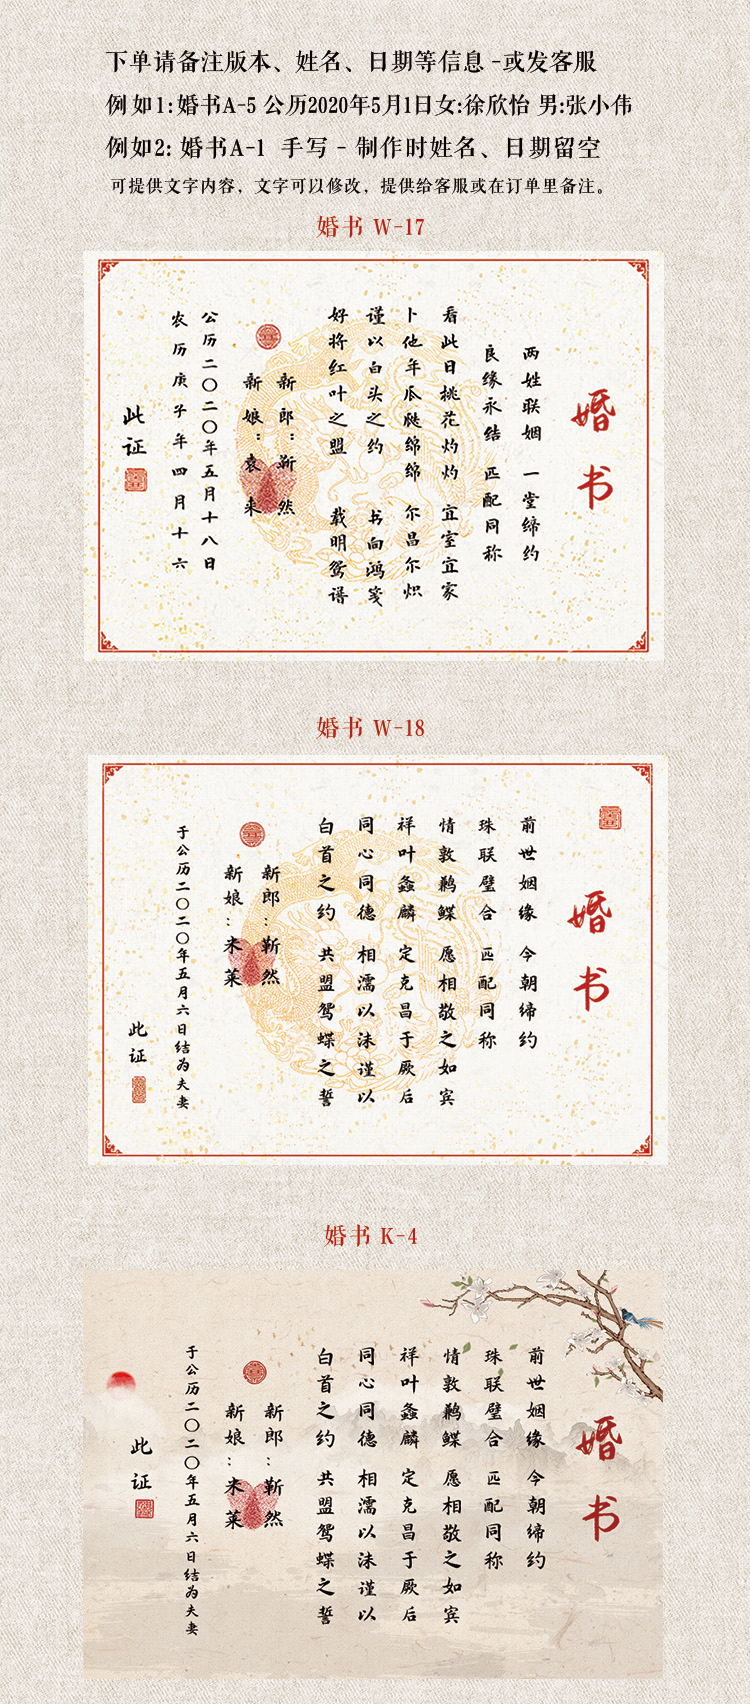 下单请备注版本、姓名、日期等信息-或发客服
例如1:婚书A-5 公历2020年5月1日女:徐欣怡 男:张小伟
例如2: 婚书A-1 手写 - 制作时姓名、日期留空
可提供文字内容，文字可以修改，提供给客服或在订单里备注。
婚书 W-17
婚书
两姓联姻 一堂缔约
良缘永结 匹配同称
看此日桃花灼灼 宜室宜家
卜他年瓜瓞绵绵 尔昌尔炽
谨以白头之约 书向鸿笺
好将红叶之盟 载明鸳谱
新郎：靳然
新娘：袁来
公历二〇二〇年五月十八日
农历庚子年四月十六
此证
婚书 W-18
婚书
前世姻缘 今朝缔约
珠联璧合 匹配同称
情敦鹣鲽 愿相敬之如宾
祥叶螽麟 定克昌于厥后
同心同德 相濡以沫谨以
白首之约 共盟鸳蝶之誓
新郎：靳然
新娘：米莱
于公历二〇二〇年五月六日结为夫妻
此证
婚书 K-4
婚书
前世姻缘 今朝缔约
珠联璧合 匹配同称
情敦鹣鲽 愿相敬之如宾
祥叶螽麟 定克昌于厥后
同心同德 相濡以沫谨以
白首之约 共盟鸳蝶之誓
新郎：靳然
新娘：米莱
于公历二〇二〇年五月六日结为夫妻
此证